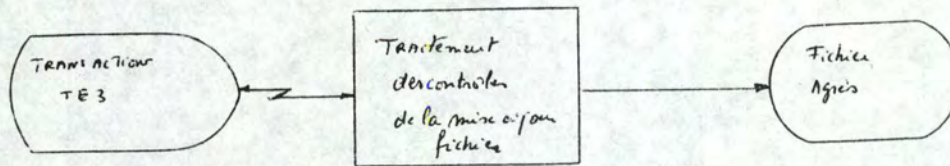 TRANSACTION
TE3
Traitement
des contrôles
de la mise à jour
fichier
Fichier
Agrès